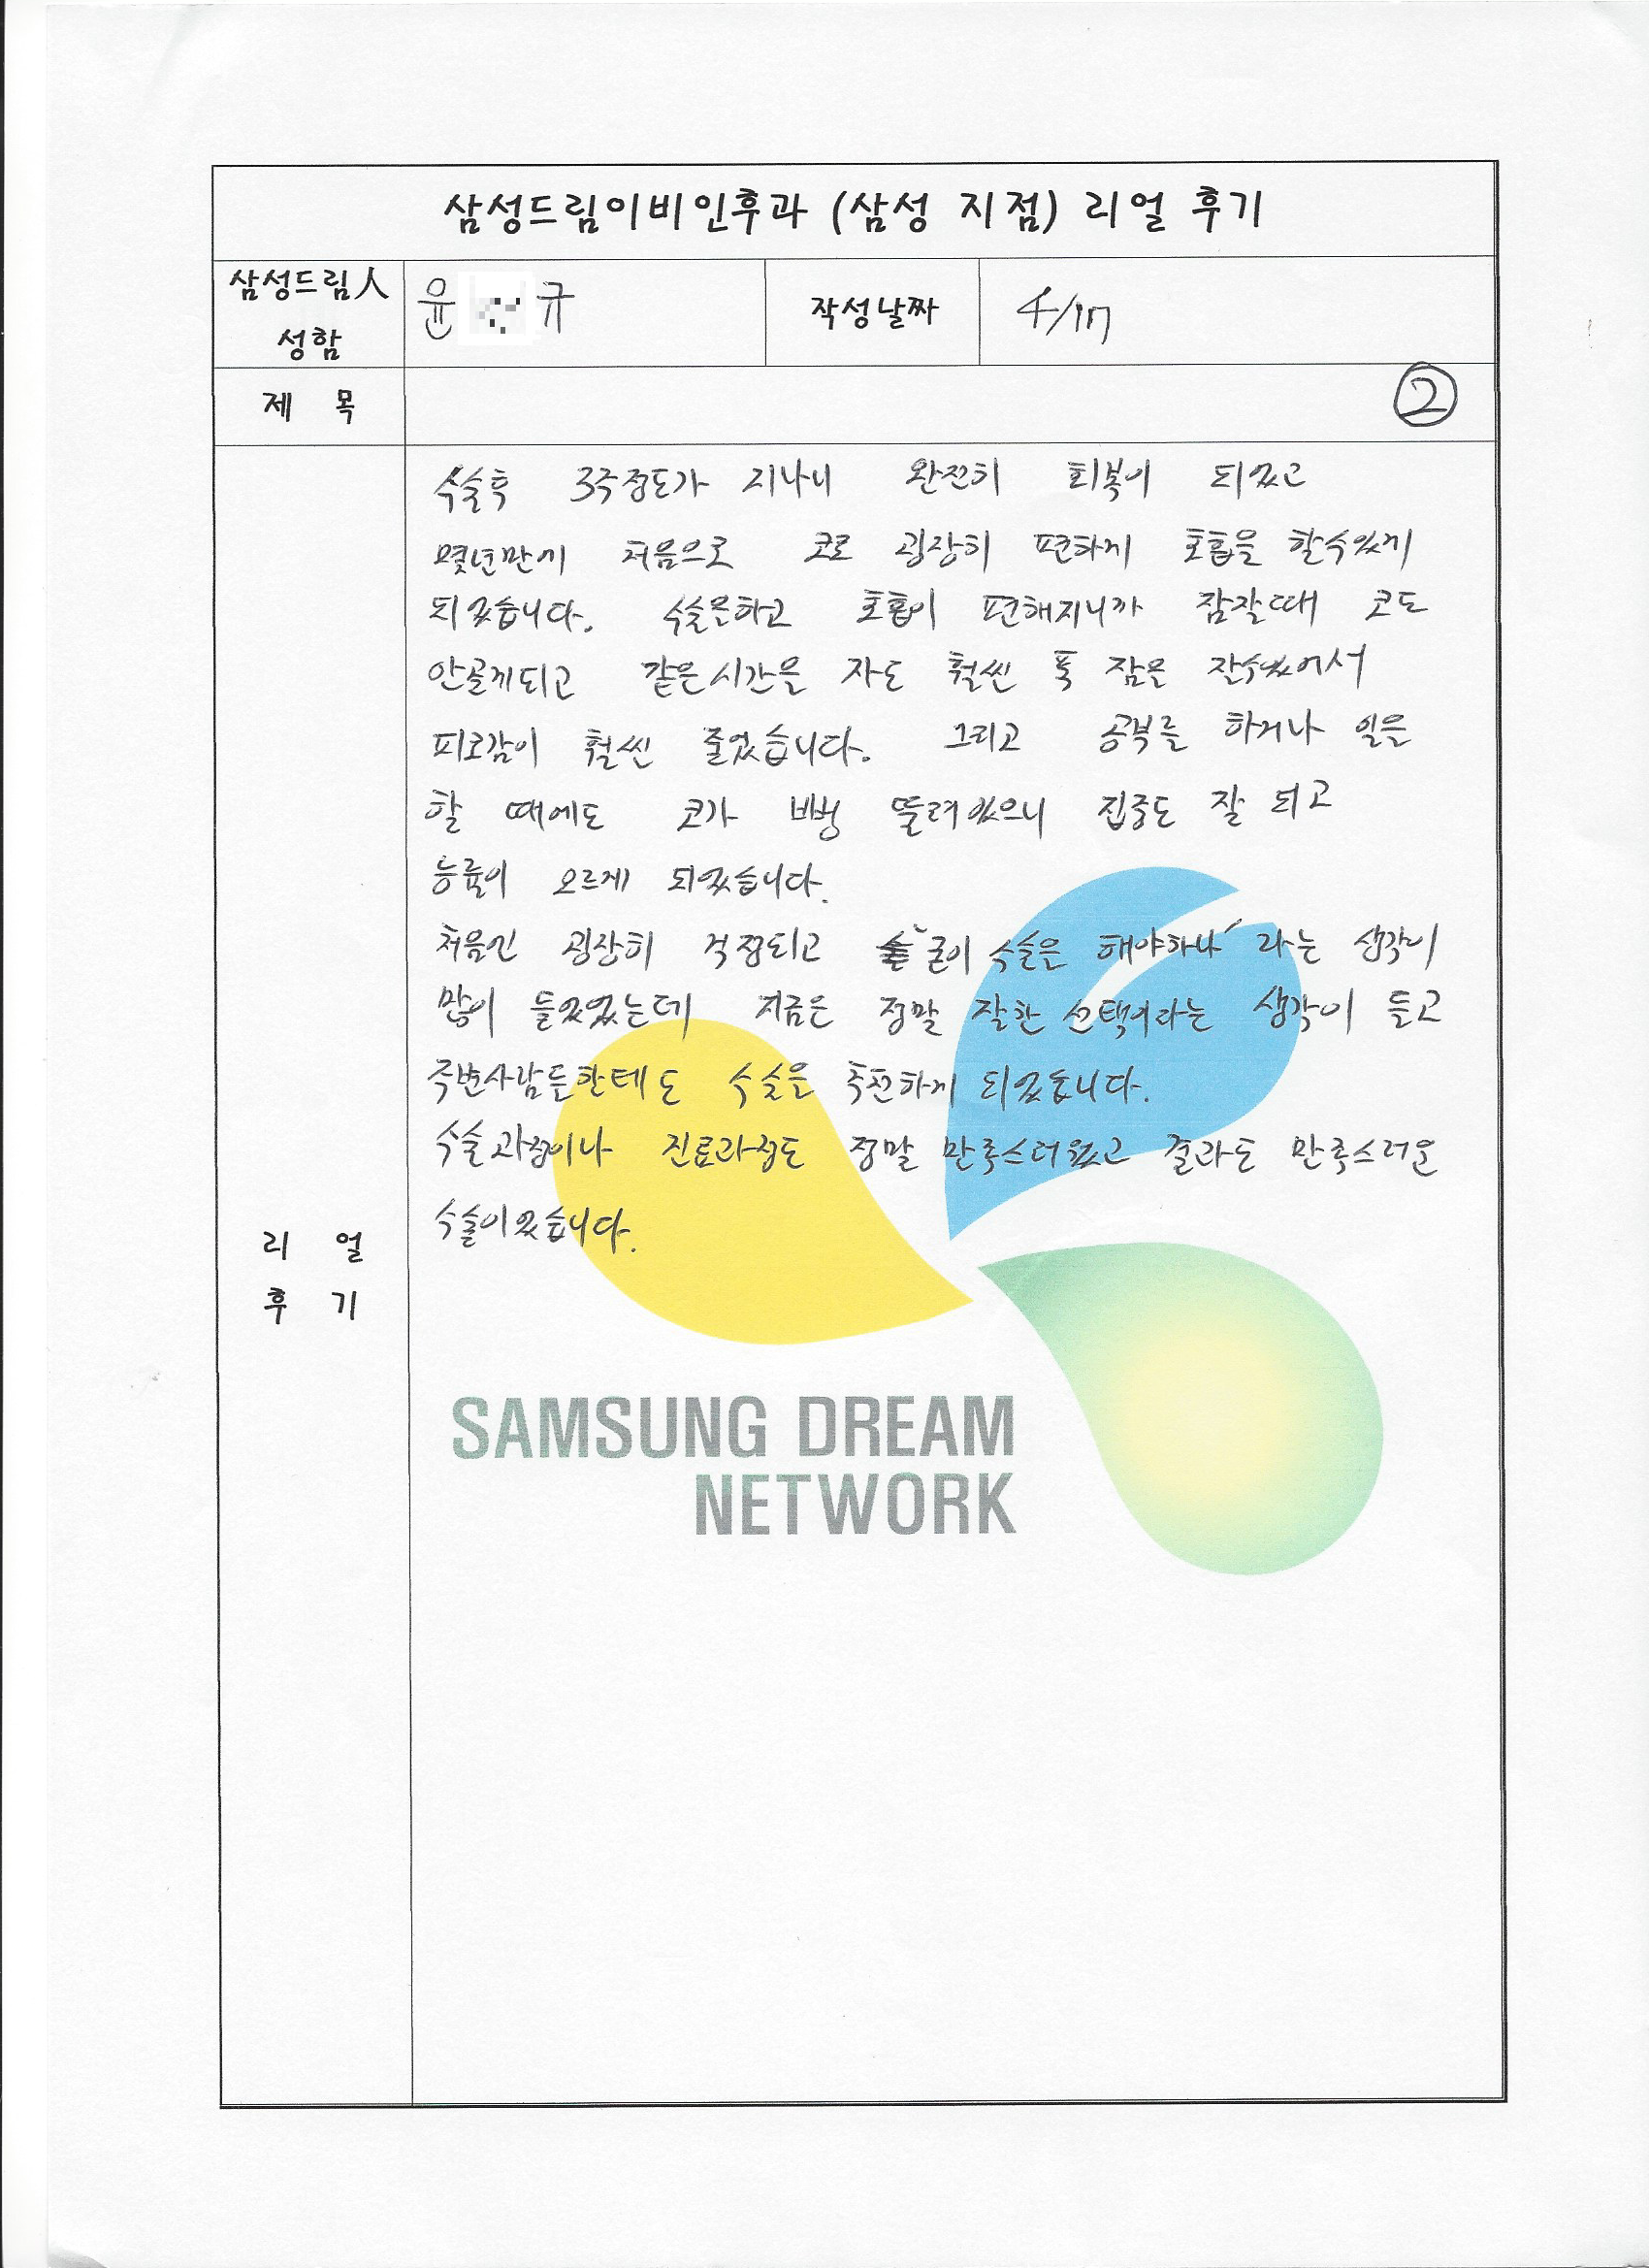 삼성드림이비인후과 (삼성 지점) 리얼 후기
삼성드림人
성함
윤 규
작성날짜
4/17
제 목
②
수술후 3주정도가 지나니 완전히 회복이 되었고
몇년만에 처음으로 코로 굉장히 편하게 호흡을 할수있게
되었습니다. 수술을하고 호흡이 편해지니까 잠잘때 코도
안골게되고 같은시간을 자도 훨씬 푹 잠을 잘수있어서
피로감이 훨씬 줄었습니다. 그리고 공부를 하거나 일을
할 때에도 코가 뻥 뚫려있으니 집중도 잘 되고
능률이 오르게 되었습니다.
처음엔 굉장히 걱정되고 "굳이 수술을 해야하나" 라는 생각이
많이 들었었는데 지금은 정말 잘한 선택이라는 생각이 들고
주변사람들한테도 수술을 추천하게 되었습니다.
수술과정이나 진료과정도 정말 만족스러웠고 결과도 만족스러운
수술이었습니다.
리 얼
후 기
SAMSUNG DREAM
NETWORK